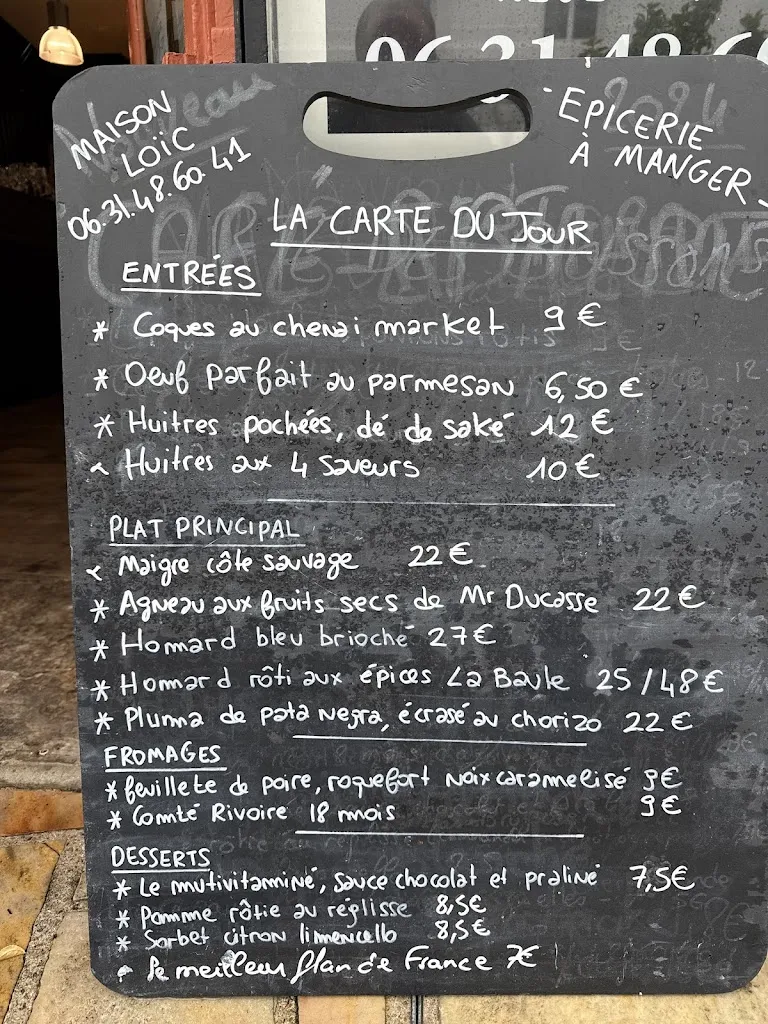 06 31 48 60
MAISON
LOÏC
06.31.48.60.41
- EPICERIE
À MANGER -
LA CARTE DU JOUR
ENTRÉES
* Coques au chenai market 9 €
* Oeuf parfait au parmesan 6,50 €
* Huitres pochées, dé de saké 12 €
* Huitres aux 4 saveurs 10 €
PLAT PRINCIPAL
* Maigre côte sauvage 22 €
* Agneau aux fruits secs de Mr Ducasse 22 €
* Homard bleu brioché 27 €
* Homard rôti aux épices La Baule 25 / 48 €
* Pluma de pata negra, écrasé au chorizo 22 €
FROMAGES
* feuilleté de poire, roquefort noix caramelisé 9€
* Comté Rivoire 18 mois 9€
DESSERTS
* Le mutivitaminé, sauce chocolat et praliné 7,5€
* Pomme rôtie au réglisse 8,5€
* Sorbet citron limencello 8,5€
* Le meilleur flan de France 7€